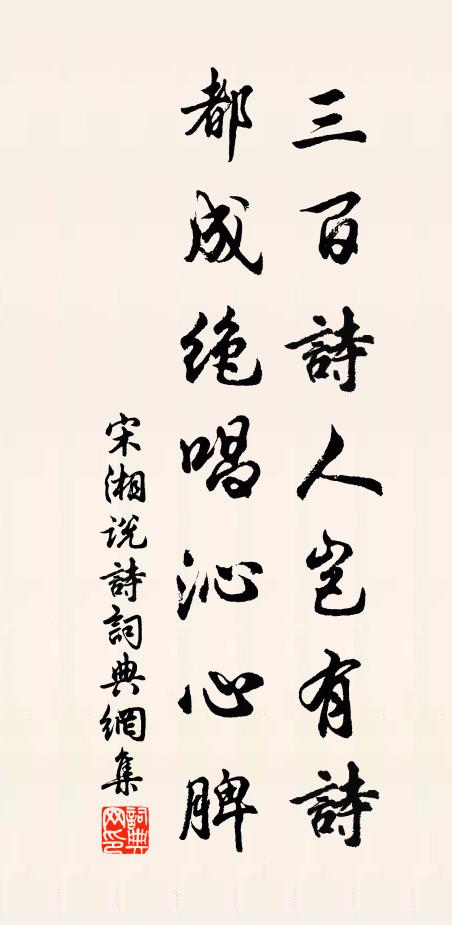 三百詩人豈有詩
都成絶唱沁心脾
宋湘说詩詞典網集
詞典网印